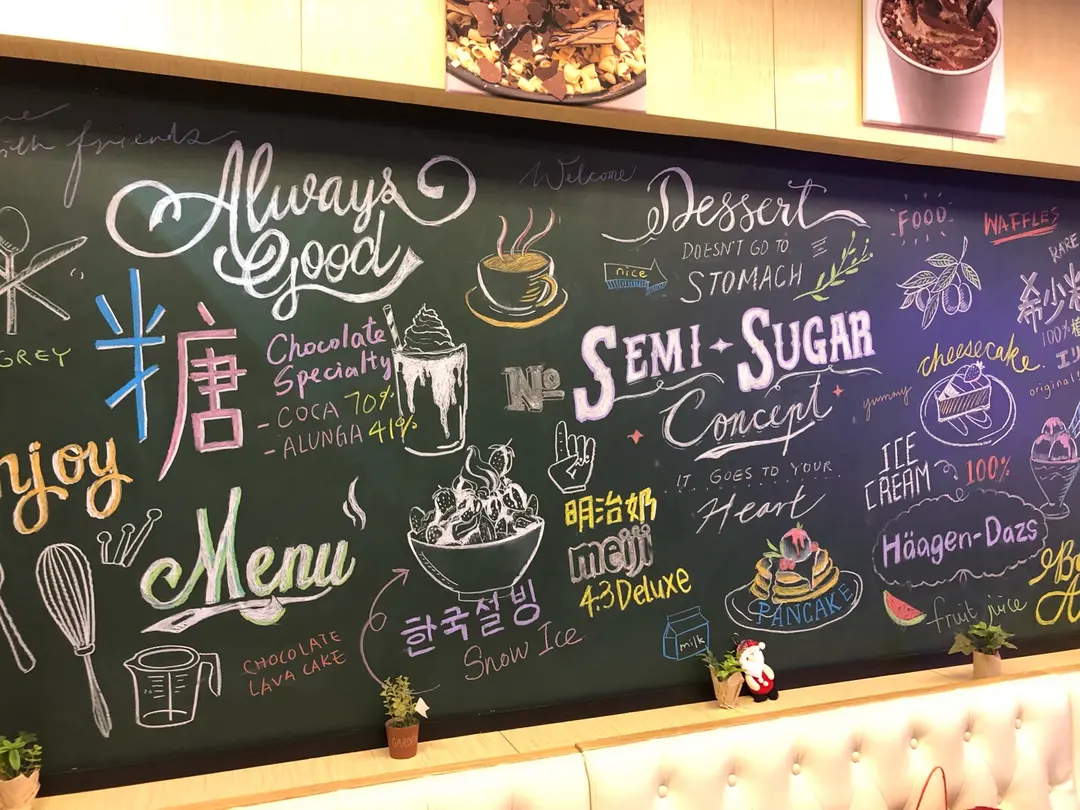 with friends
Always
Good
糖
Chocolate
Specialty
- COCA 70%
- ALUNGA 41%
GREY
njoy
Menu
CHOCOLATE
LAVA CAKE
한국설빙
Snow Ice
GARDEN
Welcome
Dessert
DOESN'T GO TO
STOMACH
nice
No
SEMI SUGAR
Concept
IT GOES TO YOUR
Heart
明治奶
meiji
4.3 Deluxe
milk
PANCAKE
FOOD
WAFFLES
RARE
希少糖
100%
cheesecake
yummy
original
ICE
CREAM
100%
Häagen-Dazs
fruit juice